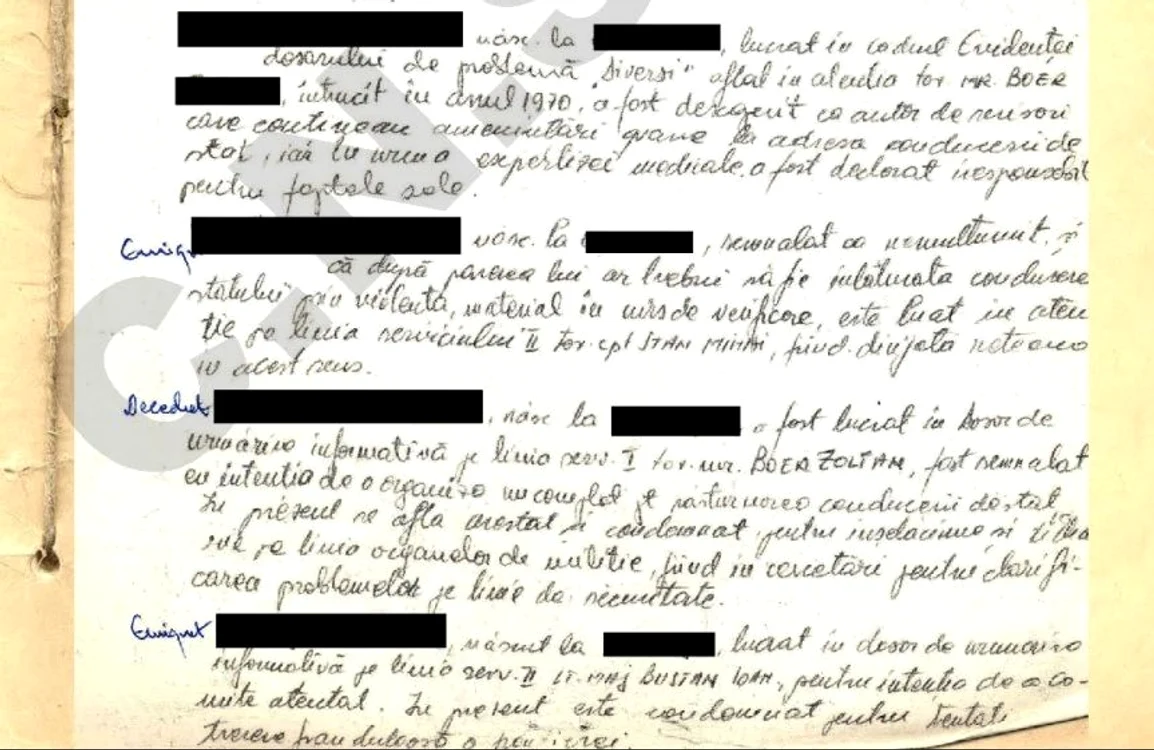 născ. la , lucrat în cadrul Evidenței
dosarului de problemă "Diverși" aflat în atenția tov. MR. BOER
, întrucît în anul 1970, a fost descoperit ca autor de scrisori
care conțineau amenințări grave la adresa conducerii de
stat, iar în urma expertizei medicale a fost declarat iresponsabil
pentru faptele sale.
născ. la , semnalat ca nemulțumit, și
că după părerea lui ar trebui să fie înlăturata conducerea
statului prin violență, material în curs de verificare, este luat în aten
ție pe linia serviciului II tov. cpt STAN MIHAI, fiind dirijată rețeaua
în acest sens.
Decedat , născ la , a fost lucrat în Dosar de
urmărire informativă pe linia serv. I tov. mr. BOER ZOLTAN, fost semnalat
cu intenția de a organiza un complot pt răsturnarea conducerii de stat
În prezent se află arestat și condamnat pentru înșelăciune și
pe linia organelor de miliție, fiind în cercetări pentru clarifi-
carea problemelor pe linie de securitate.
Emigrat , născut la , lucrat în dosar de urmărire
informativă pe linia serv. II LT. MAJ BUSTAN IOAN, pentru intenția de a co-
mite atentat. În prezent este condamnat pentru tentati
trecere frauduloasă a
C.N.S